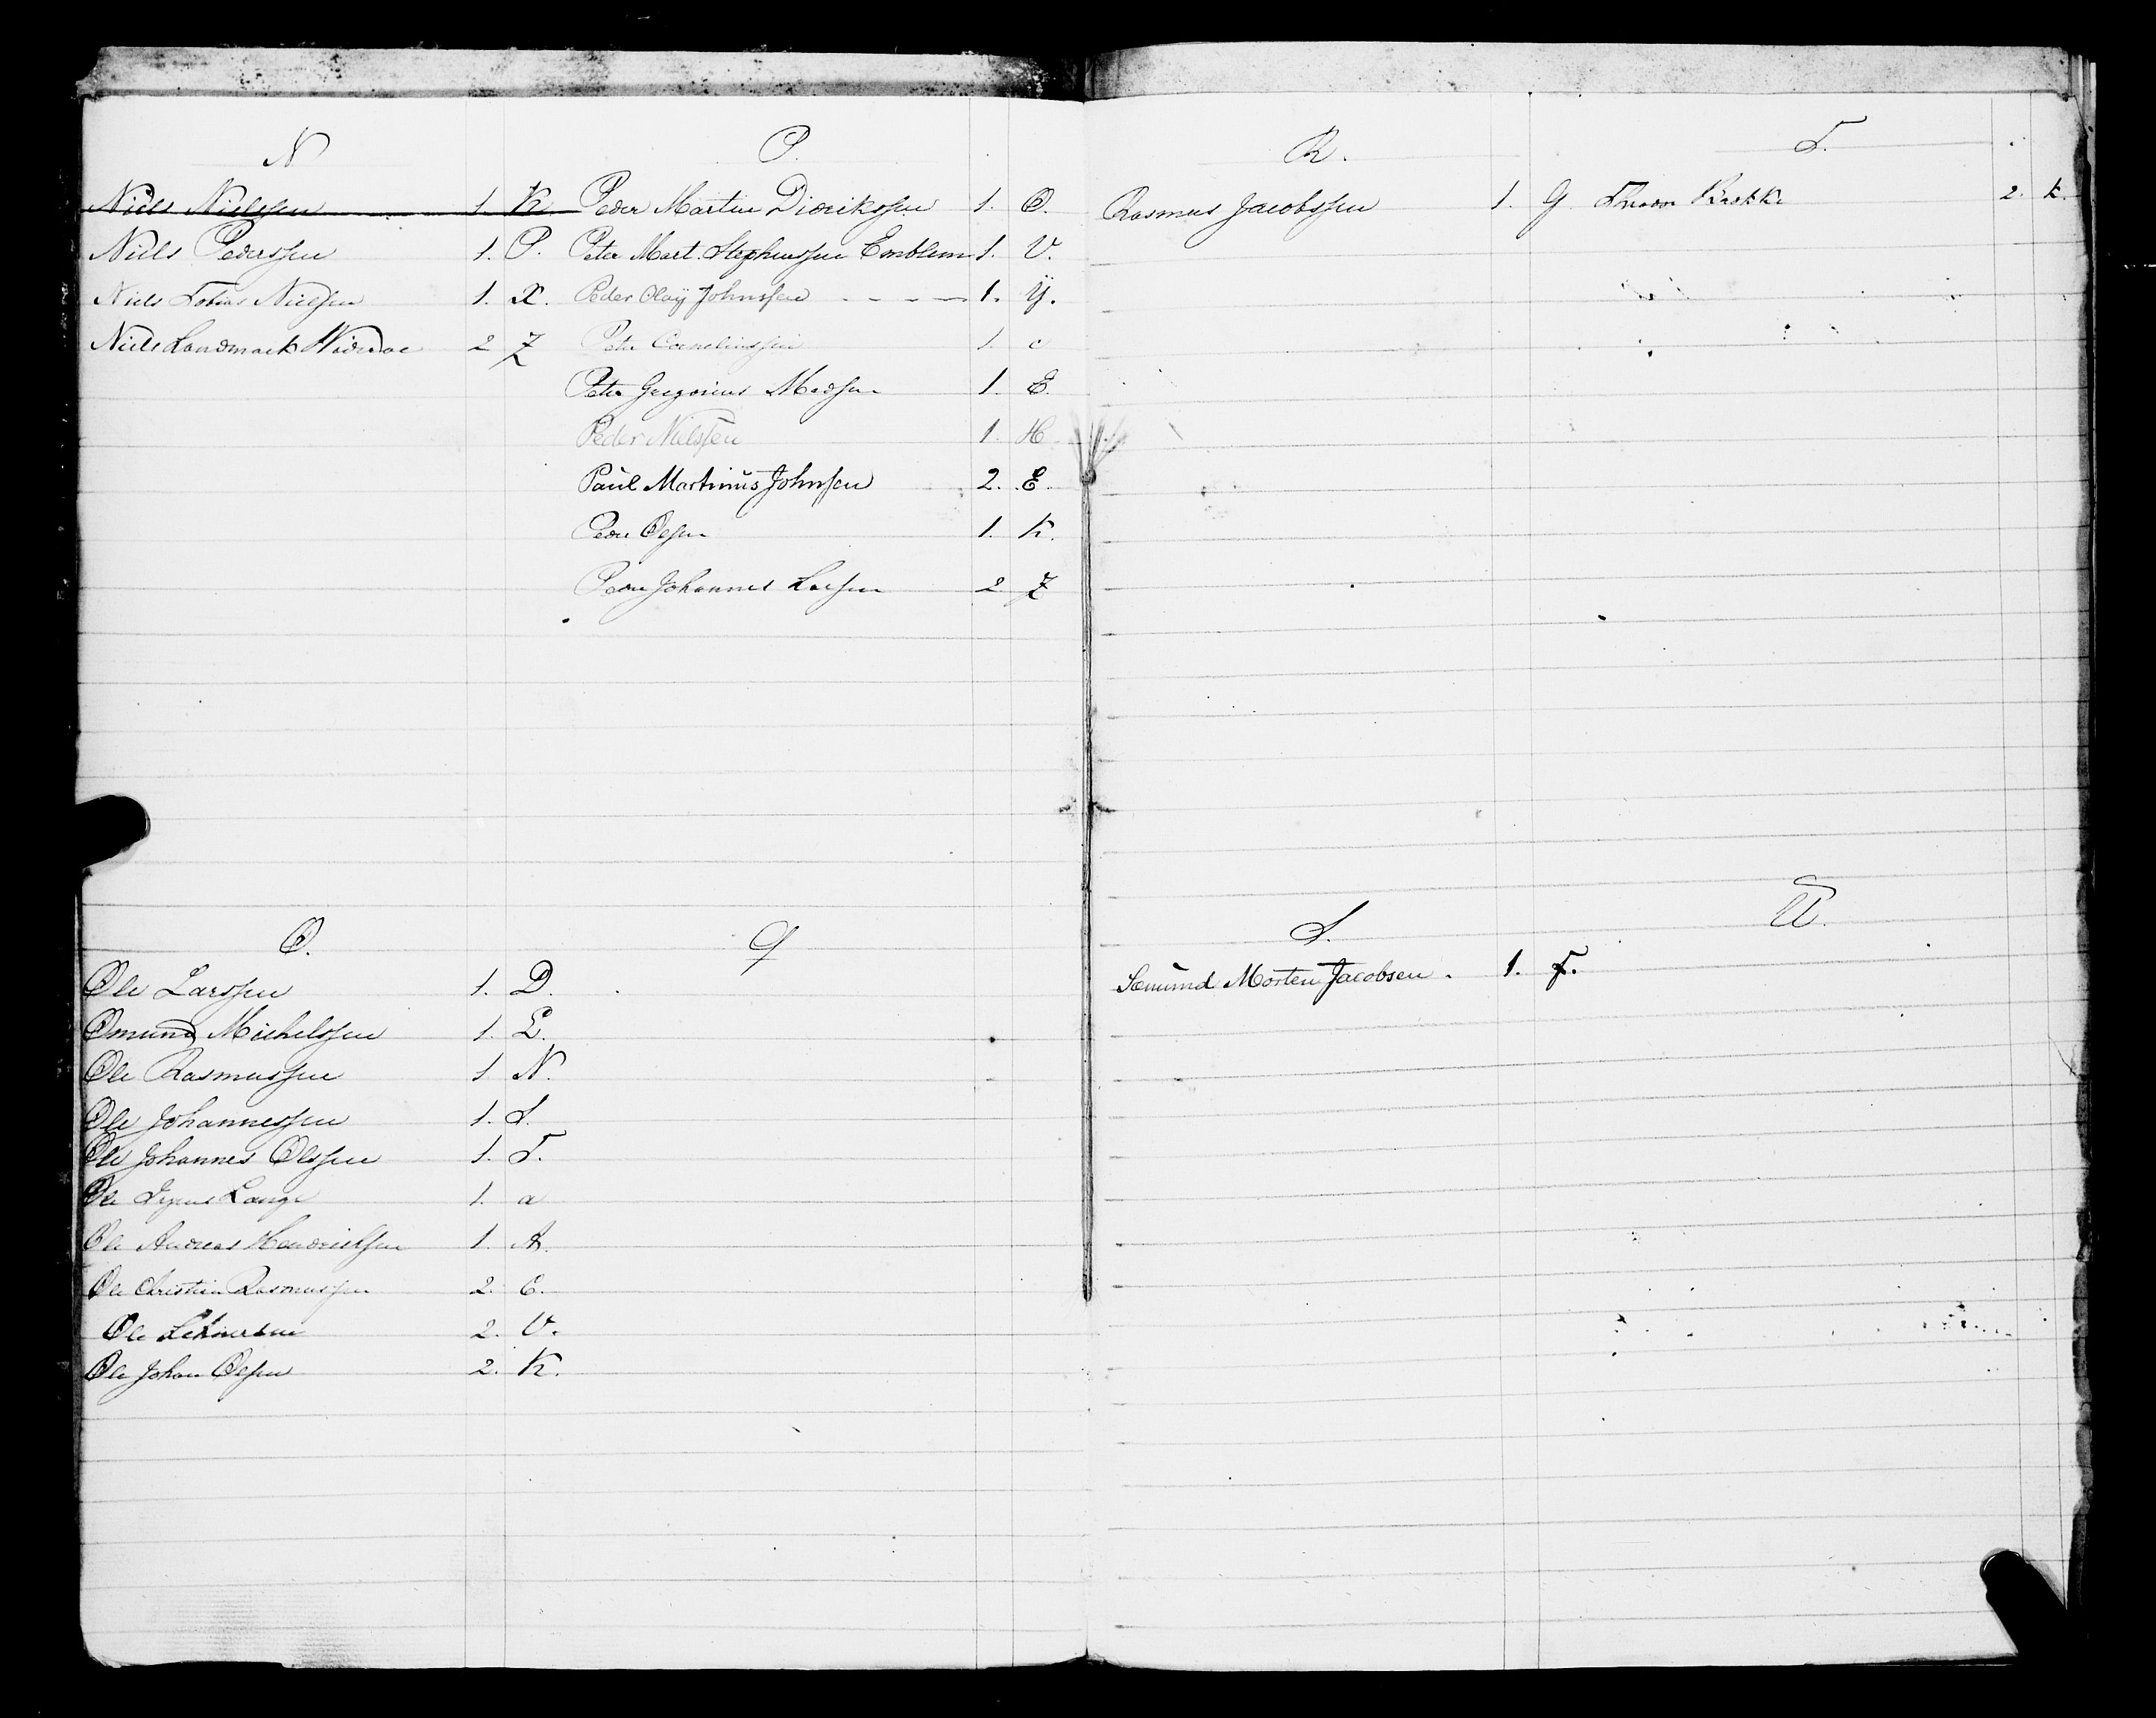 N
Niels Nielssen 1. K.
Niels Pederssen 1. P.
Niels Tobias Nielsen 1. X.
Niels Landmark 2 Z
O.
Ole Larssen 1. D.
Omund Michelssen 1. L.
Ole Rasmussen 1 N.
Ole Johannessen 1. S.
Ole Johannes Olssen 1. T.
Ole Lange 1. a
Ole Andreas Hendriksen 1. A.
Ole Christian Rasmussen 2. C.
Ole 2. V.
Ole Johan Olsen 2. K.
P.
Peder Martin Dierikssen 1. O.
Peter Mart. Stephenssen Emblem 1. V.
Peder Olaÿ Johnssen 1. Y.
Peter Corneliussen 1. c
Peter Gregorius Madsen 1. E.
Peder Nielssen 1. H
Paul Martinus Johnsen 2. E.
Peder Olsen 1. K.
Peder Johannes Larsen 2 Z
Q
R.
Rasmus Jacobssen 1. G.
S.
Sæmund Morten Jacobsen. 1. F.
T.
2. K.
U.